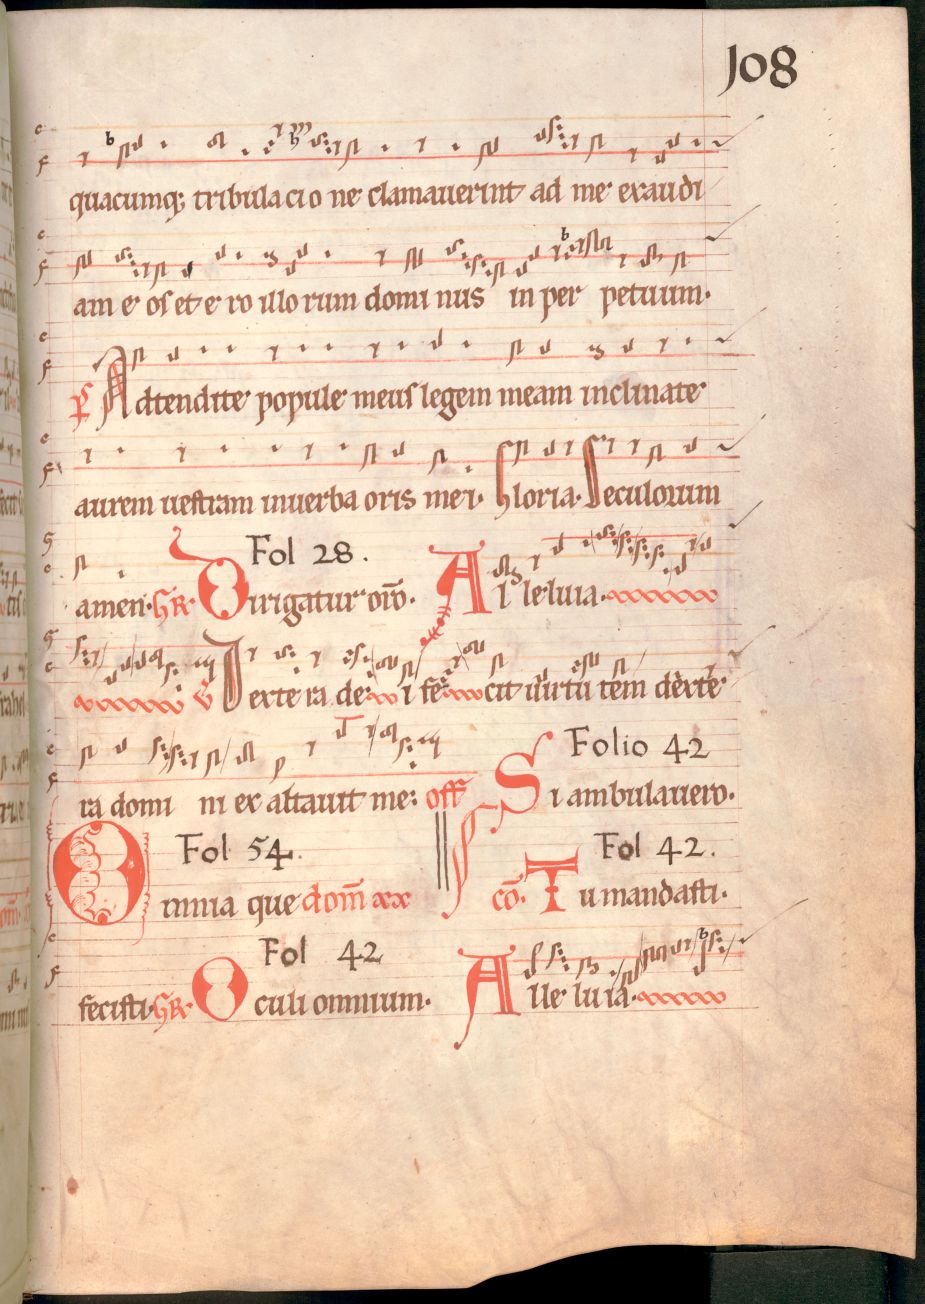 108
quacumq; tribulacio ne clamauerint ad me exaudi
am e os et e ro illo rum domi nus in per petuum.
ps Adtendite popule meus legem meam inclinate
aurem uestram inuerba oris mei. Gloria. Seculorum
Fol 28.
amen. GR. Dirigatur orō. Alleluia.
V Dextera dei fecit uirtutem dexte
Folio 42
ra domi ni ex altauit me: off Si ambulauero.
Fol 54. Fol 42.
Omnia que dom̄ xx cō. Tu mandasti.
Fol 42
fecisti. GR. Oculi omnium. Alleluia.